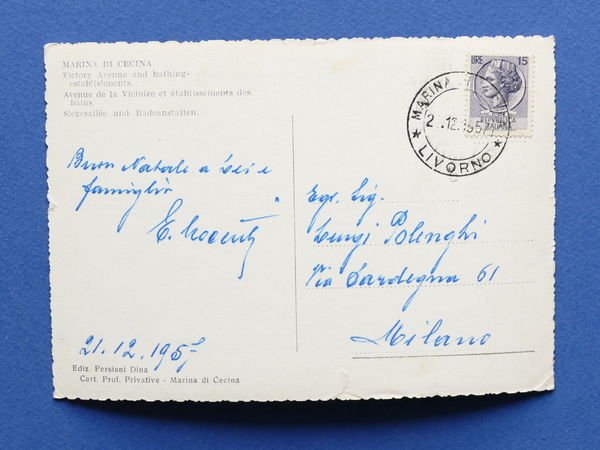 MARINA DI CECINA
Victory Avenue and bathing-
establishments.
Avenue de la Victoire et établissements des
bains.
Siegesallée und Badeanstalten.
LIRE 15
REPVBBLICA
ITALIANA
MARINA DI
2 .12.1957
LIVORNO
Buon Natale a Lei e
famiglia
E.
21.12.1957
Egr. Sig.
Luigi Polenghi
Via Sardegna 61
Milano
Ediz. Persiani Dina
Cart. Prof. Privative - Marina di Cecina